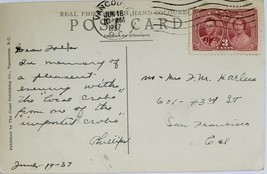 REAL PHOTO HAND COLOURED
POST CARD
VANCOU
JUN 18
10 AM
1937
3
Published by The Gowen Sutton Co., Ltd., Vancouver, B.C.
Dear Folks
In memory of
a pleasant
evening with
the "local crabs"
from one of the
"imported crabs"
Philip
June 19-37
Mr & Mrs F. M. Karless
601- 43rd ST
San Francisco
Cal